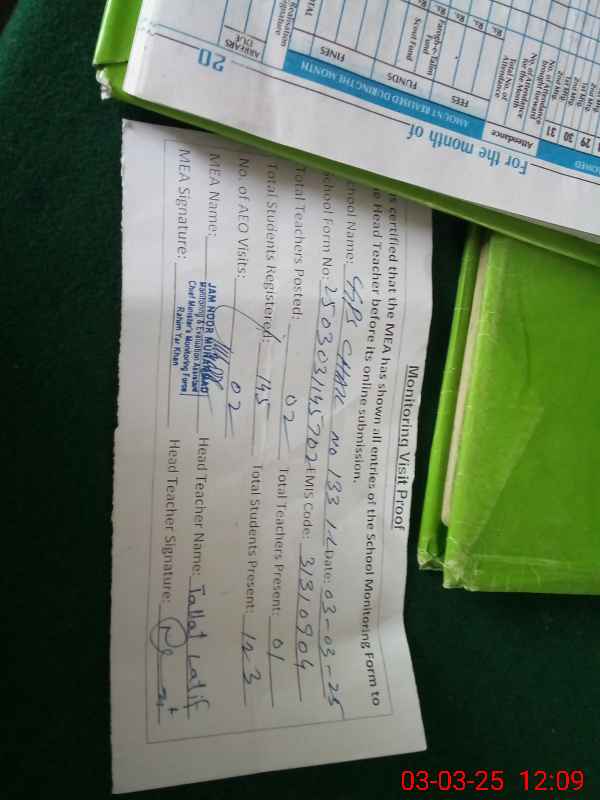 Monitoring Visit Proof
is certified that the MEA has shown all entries of the School Monitoring Form to
Head Teacher before its online submission.
chool Name: GGPS CHAK No 133 1-L Date: 03-03-25
chool Form No: 250303145702 EMIS Code: 31310904
Total Teachers Posted: 02 Total Teachers Present: 01
Total Students Registered: 145 Total Students Present: 123
No. of AEO Visits: 02
MEA Name: Head Teacher Name: Tallat Latif
MEA Signature: Head Teacher Signature:
JAM NOOR MUHAMMAD
Monitoring & Evaluation Assistant
Chief Minister's Monitoring Force
Rahim Yar Khan
For the month of
20
AMOUNT REALISED DURING THE MONTH
Attendance
FEES
FUNDS
FINES
ARREARS
DUE
Total No. of
Attendance
No. of Attendance
for the Month
No. of Attendance
brought forward
Farogh-e-Talim
Fund
Scout Fund
Realisation
Signature
Rs.
1st Mtg.
2nd Mtg.
29 30 31
03-03-25 12:09